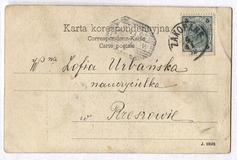 Karta korespondencyjna
Correspondenz-Karte
Carte postale
ZAKO
Zofia Urbańska
nauczycielka
w Rzeszowie